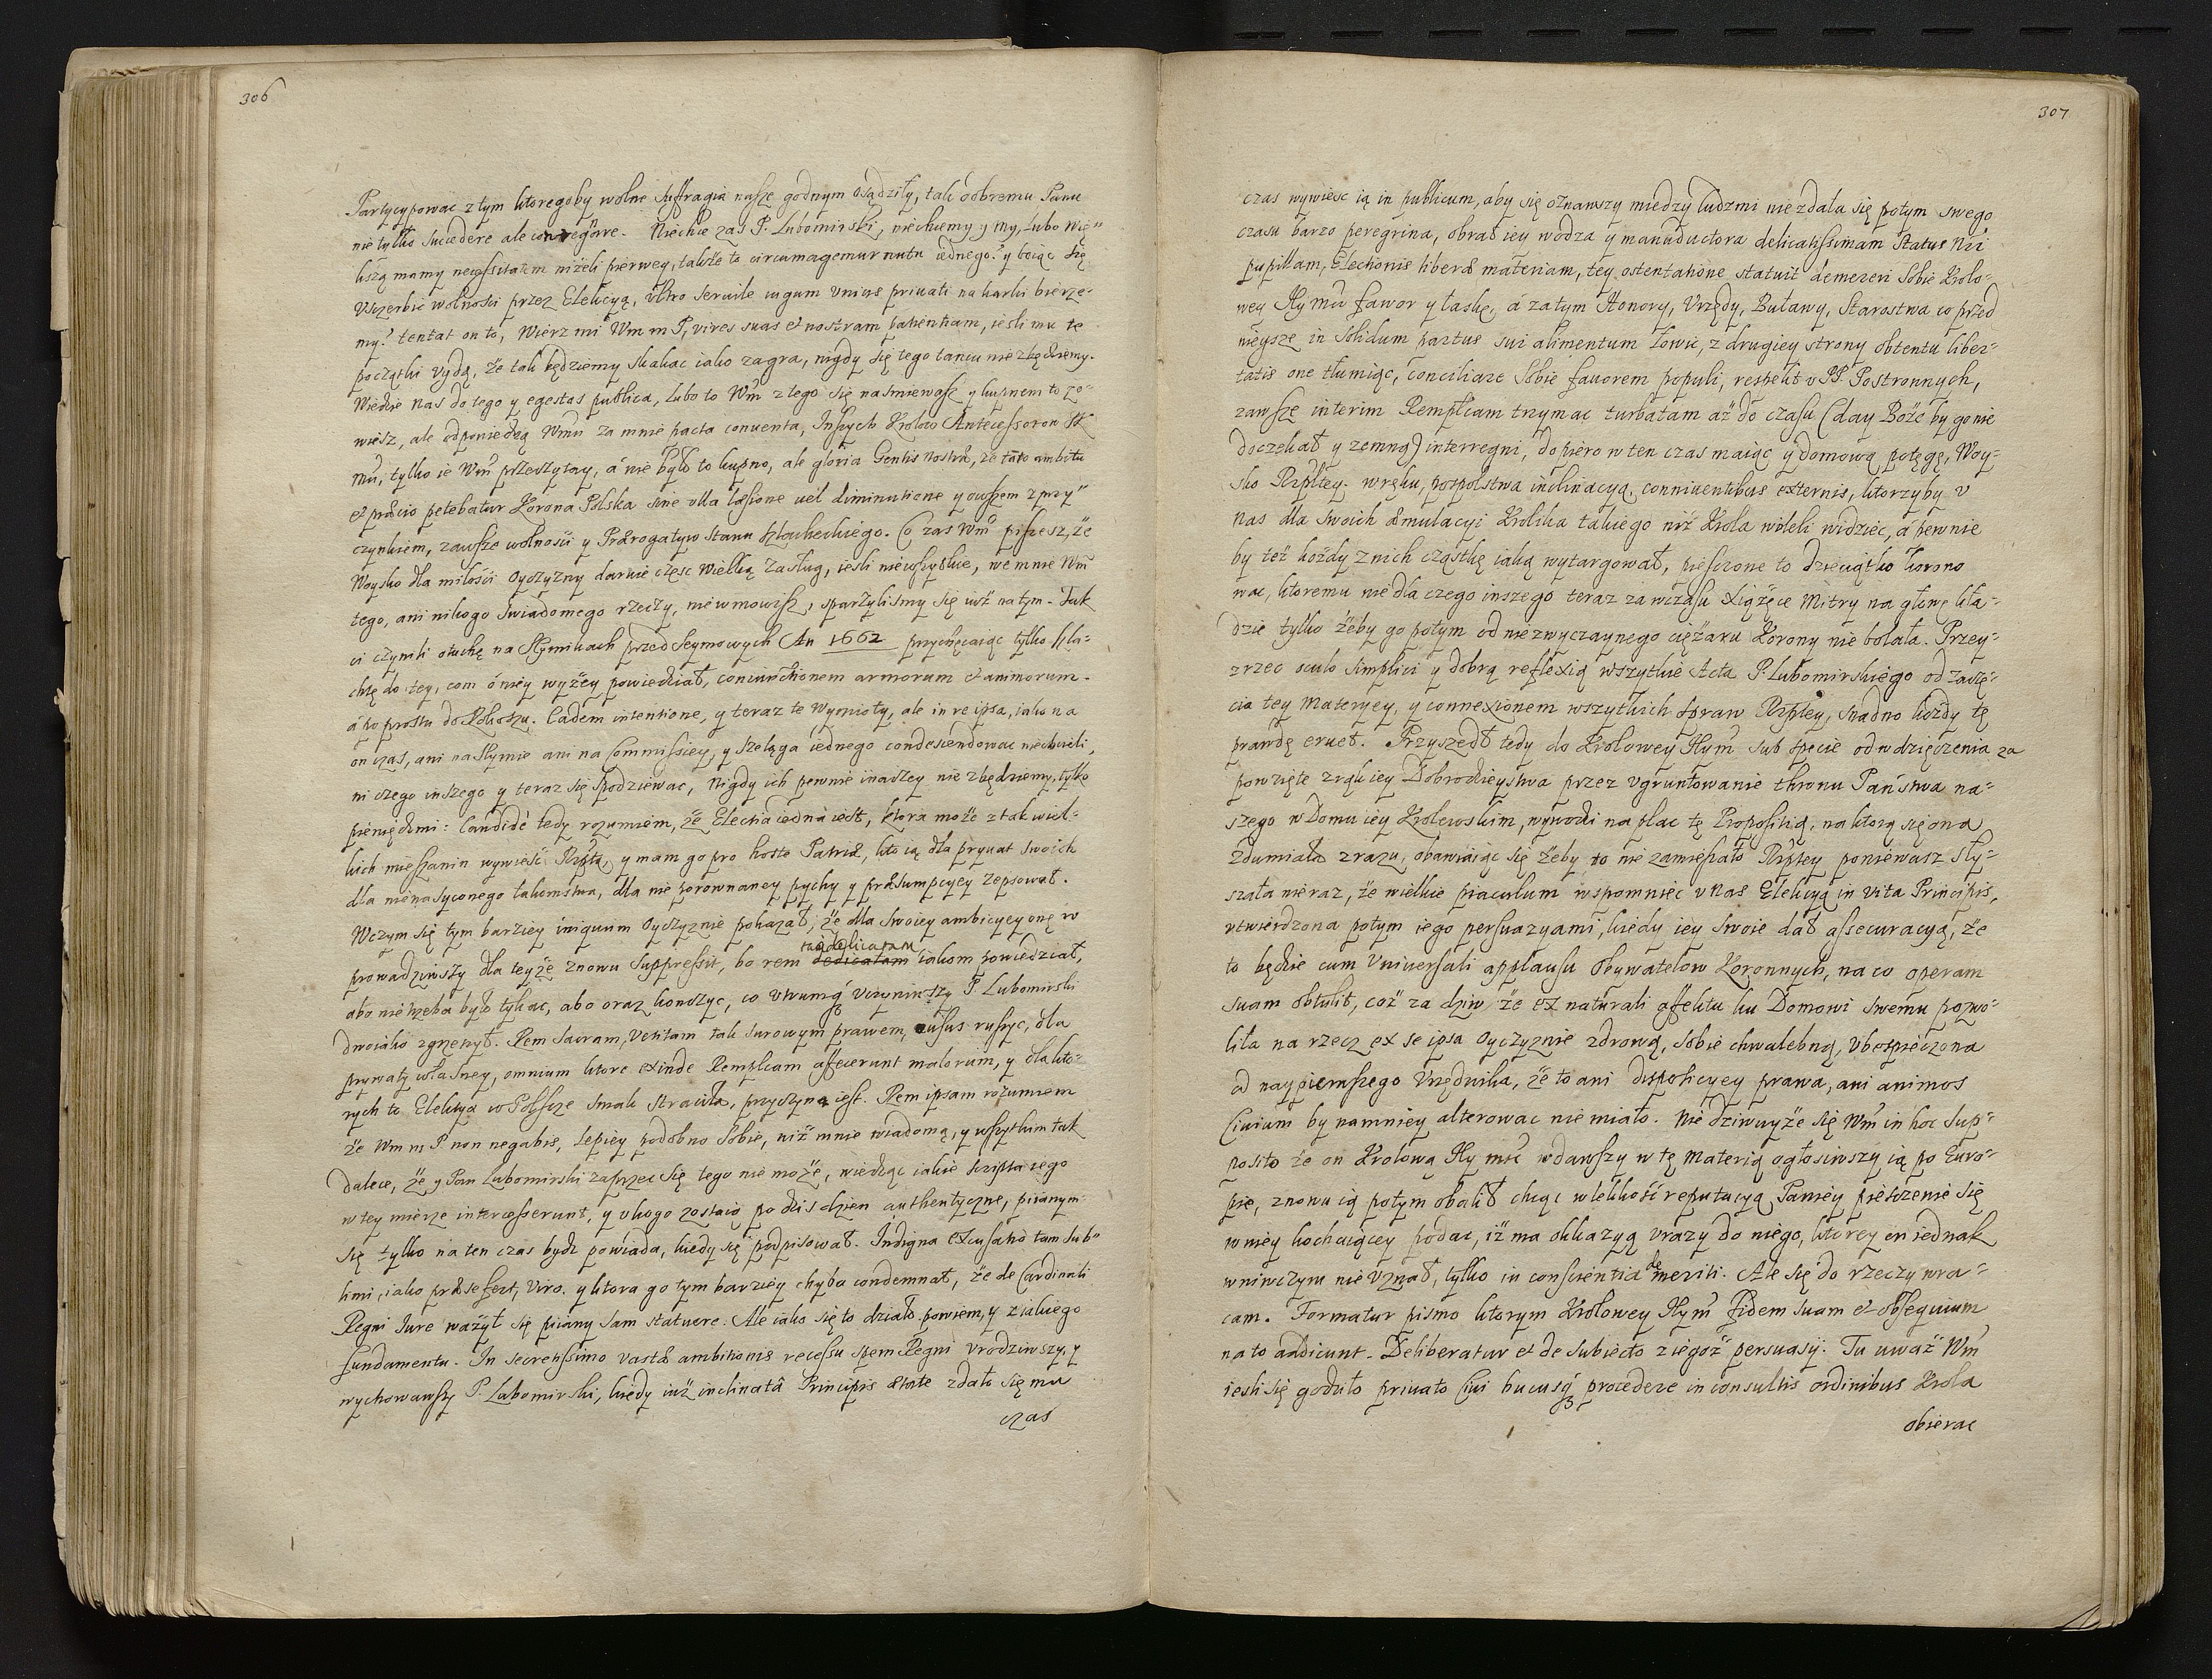 306
Partycypowac z tym ktoregoby wolne suffragia nasze godnym osądziły, tak dobremu Panu
nie tylko succedere ale conregnare. Niechce zas P. Lubomirski, niechcemy y my, lubo wię=
kszą mamy necessitatem niżeli pierwey, także to circumagemur nutu iednego? y boiąc się
Vszczerbic wolnosci przez Elekcyą, vltro servile iugum vnius privati na karki bierze=
my? tentat on to, wierz mi Wm m P, vires suas et nostram patientiam, iesli mu te
początki vydą, że tak będziemy skakac iako zagra, nigdy się tego tancu nie zbędziemy.
Wiedzie nas do tego y egestas publica, lubo to Wm z tego się nasmiewasz y kupnem to zo=
wiesz, ale odpowiedzą Wmu za mnie pacta conventa, Inszych Krolow Antecessorow JK
Mci, tylko ie Wm przeczytay, á nie było to kupno, ale gloria Gentis nostræ, że tanto ambitu
et præcio petebatur Korona Polska sine vlla læsione vel diminutione y owszem z przy=
czynkiem, zawsze wolnosci y Prærogatyw stanu szlacheckiego. Co zas Wm piszesz, że
Woysko dla miłosci Oyczyzny daruie częsc wielką zasług, iesli nie wszytkie, we mnie Wm
tego, ani nikogo swiadomego rzeczy, nie wmowisz, sparzylismy się iuż na tym. Tak
ci czynili otuchę na Seymikach przed Seymowych An 1662 przychęcaiąc tylko szla=
chtę do tey, com o niey wyżey powiedział, coniunctionem armorum et animorum.
á po prostu do Rokoszu. Eadem intentione, y teraz te wymioty, ale in re ipsa, iako na
on czas, ani na Seymie ani na Commissiey, y szeląga iednego condescendowac niechcieli,
ni czego inszego y teraz się spodziewac, nigdy ich pewnie inaczey nie zbędziemy, tylko
pieniędzmi: Candidè tedy rozumiem, że Electia iedna iest, ktora może z tak wiel=
kich mieszanin wywiesc Rzptą, y mam go pro hoste Patriæ, kto ią dla prywat swoich
dla nienasyconego łakomstwa, dla nie porownaney pychy y præsumpcyey zepsował.
Wczym się tym barziey iniquum Oyczyznie pokazał, że dla swoiey ambicyey onę w
prowadziwszy dla teyże znowu suppressit, bo rem dedicatam iakom powiedział,
abo nie trzeba było tykac, abo oraz konczyc, co vtrumq vczyniwszy P. Lubomirski
dwoiako zgrzeszył. Rem sacram, vetitam tak surowym prawem, ausus ruszyc, dla
prywaty własney, omnium ktore exinde Rempbcam affecerunt malorum, y dla kto=
rych te Elekcya w Polszcze smak straciła, przyczyną iest. Rem ipsam rozumiem
że Wm m P. non negabis, lepiey podobno sobie, niż mnie wiadomą, y wszytkim tak
dalece, że y Pan Lubomirski zaprzec się tego nie może, wiedząc iakie scripta iego
w tey mierze intercesserunt, y v kogo zostaią po dzis dzien authentyczne, pianym
się tylko na ten czas bydz powiada, kiedy się podpisował. Indigna excusatio tam sub=
limi, iako præ se fert, viro. y ktora go tym barziey chyba condemnat, że de Cardinali
Regni Iure ważył się piany sam statuere. Ale iako się to działo powiem, y z iakiego
fundamentu. In secretissimo vastæ ambitionis recessu spem Regni vrodziwszy, y
wychowawszy P. Lubomirski, kiedy iuż inclinatâ Principis ætate zdało się mu
czas
307
czas wywiesc ią in publicum, aby się oznawszy miedzy ludzmi nie zdała się potym swego
czasu barzo peregrina, obrał iey wodza y manuductora delicatissimam Status Nri
pupillam, Electionis liberæ materiam, tey ostentatione statuit demereri sobie Krolo=
wey Jey Mci fawor y łaskę, á zatym Honory, Vrzędy, Buławy, Starostwa co przed
nieysze in solidum partus sui alimentum łowic, z drugiey strony obtentu liber=
tatis one tłumiąc, conciliare sobie favorem populi, respekt v PP. Postronnych,
zawsze interim Rempbcam trzymac turbatam aż do czasu (day Boże by go nie
doczekał y zemną) interregni, dopiero w ten czas maiąc y domową potęgę, Woy=
sko Rzpltey. w ręku, pospolstwa inclinacyą, conniventibus externis, ktorzyby v
nas dla swoich æmulacyi Krolika takiego niż Krola woleli widziec, á pewnie
by też każdy z nich cząstkę iaką wytargował, pieszczone to dzieciątko korono
wac, ktoremu nie dla czego inszego teraz zawczasu Xiążęce Mitry na głowę kła=
dzie tylko żeby go potym od niezwyczaynego ciężaru Korony nie bolała. Przey=
zrzec oculo simplici y dobrą reflexią wszytkie Acta P. Lubomirskiego od zaczę=
cia tey Materyey, y connexionem wszytkich spraw Rzptey, snadno każdy tę
prawdę eruet. Przyszedł tedy do Krolowey Jeym sub specie odwdzięczenia za
powzięte z rąk iey Dobrodzieystwa przez vgruntowanie thronu Panstwa na=
szego w Domu iey Krolewskim, wywodzi na plac tę Propositią, na ktorą się ona
zdumiała zrazu, obawiaiąc się żeby to nie zamieszało Rzptey poniewasz sły=
szała nieraz, że wielkie piaculum wspomniec v nas Elekcyą in vita Principis,
vtwierdzona potym iego persuazyami, kiedy iey swoie dał assecuracyą, że
to będzie cum Vniversali applausu Obywatelow Koronnych, na co operam
suam obtulit, coż za dziw że ex naturali affektu ku Domowi swemu pozwo=
liła na rzecz ex se ipsa Oyczyznie zdrową, sobie chwalebną, vbespieczona
od naypierwszego Vrzędnika, że to ani dispositiey prawa, ani animos
Civium by namniey alterowac nie miało. Nie dziwuyże się Wm in hoc sup=
posito że on Krolową Jey Mć wdawszy w tę materią ogłosiwszy ią po Euro=
pie, znowu ią potym obalił chcąc w lekkość reputacyą Paniey pieszczenie się
w niey kochaiącey podac, iż ma okkazyą vrazy do niego, ktorey on iednak
w niwczym nie vznał, tylko in conscientia demeriti. Ale się do rzeczy wra=
cam. Formatur pismo ktorym Krolowey Jeym fidem suam et obsequium
na to addicunt. Deliberatur et de subiecto z iegoż persuasÿ. Tu uważ Wm
iesli się godziło privato Civi hucusq procedere inconsultis ordinibus Krola
obierac